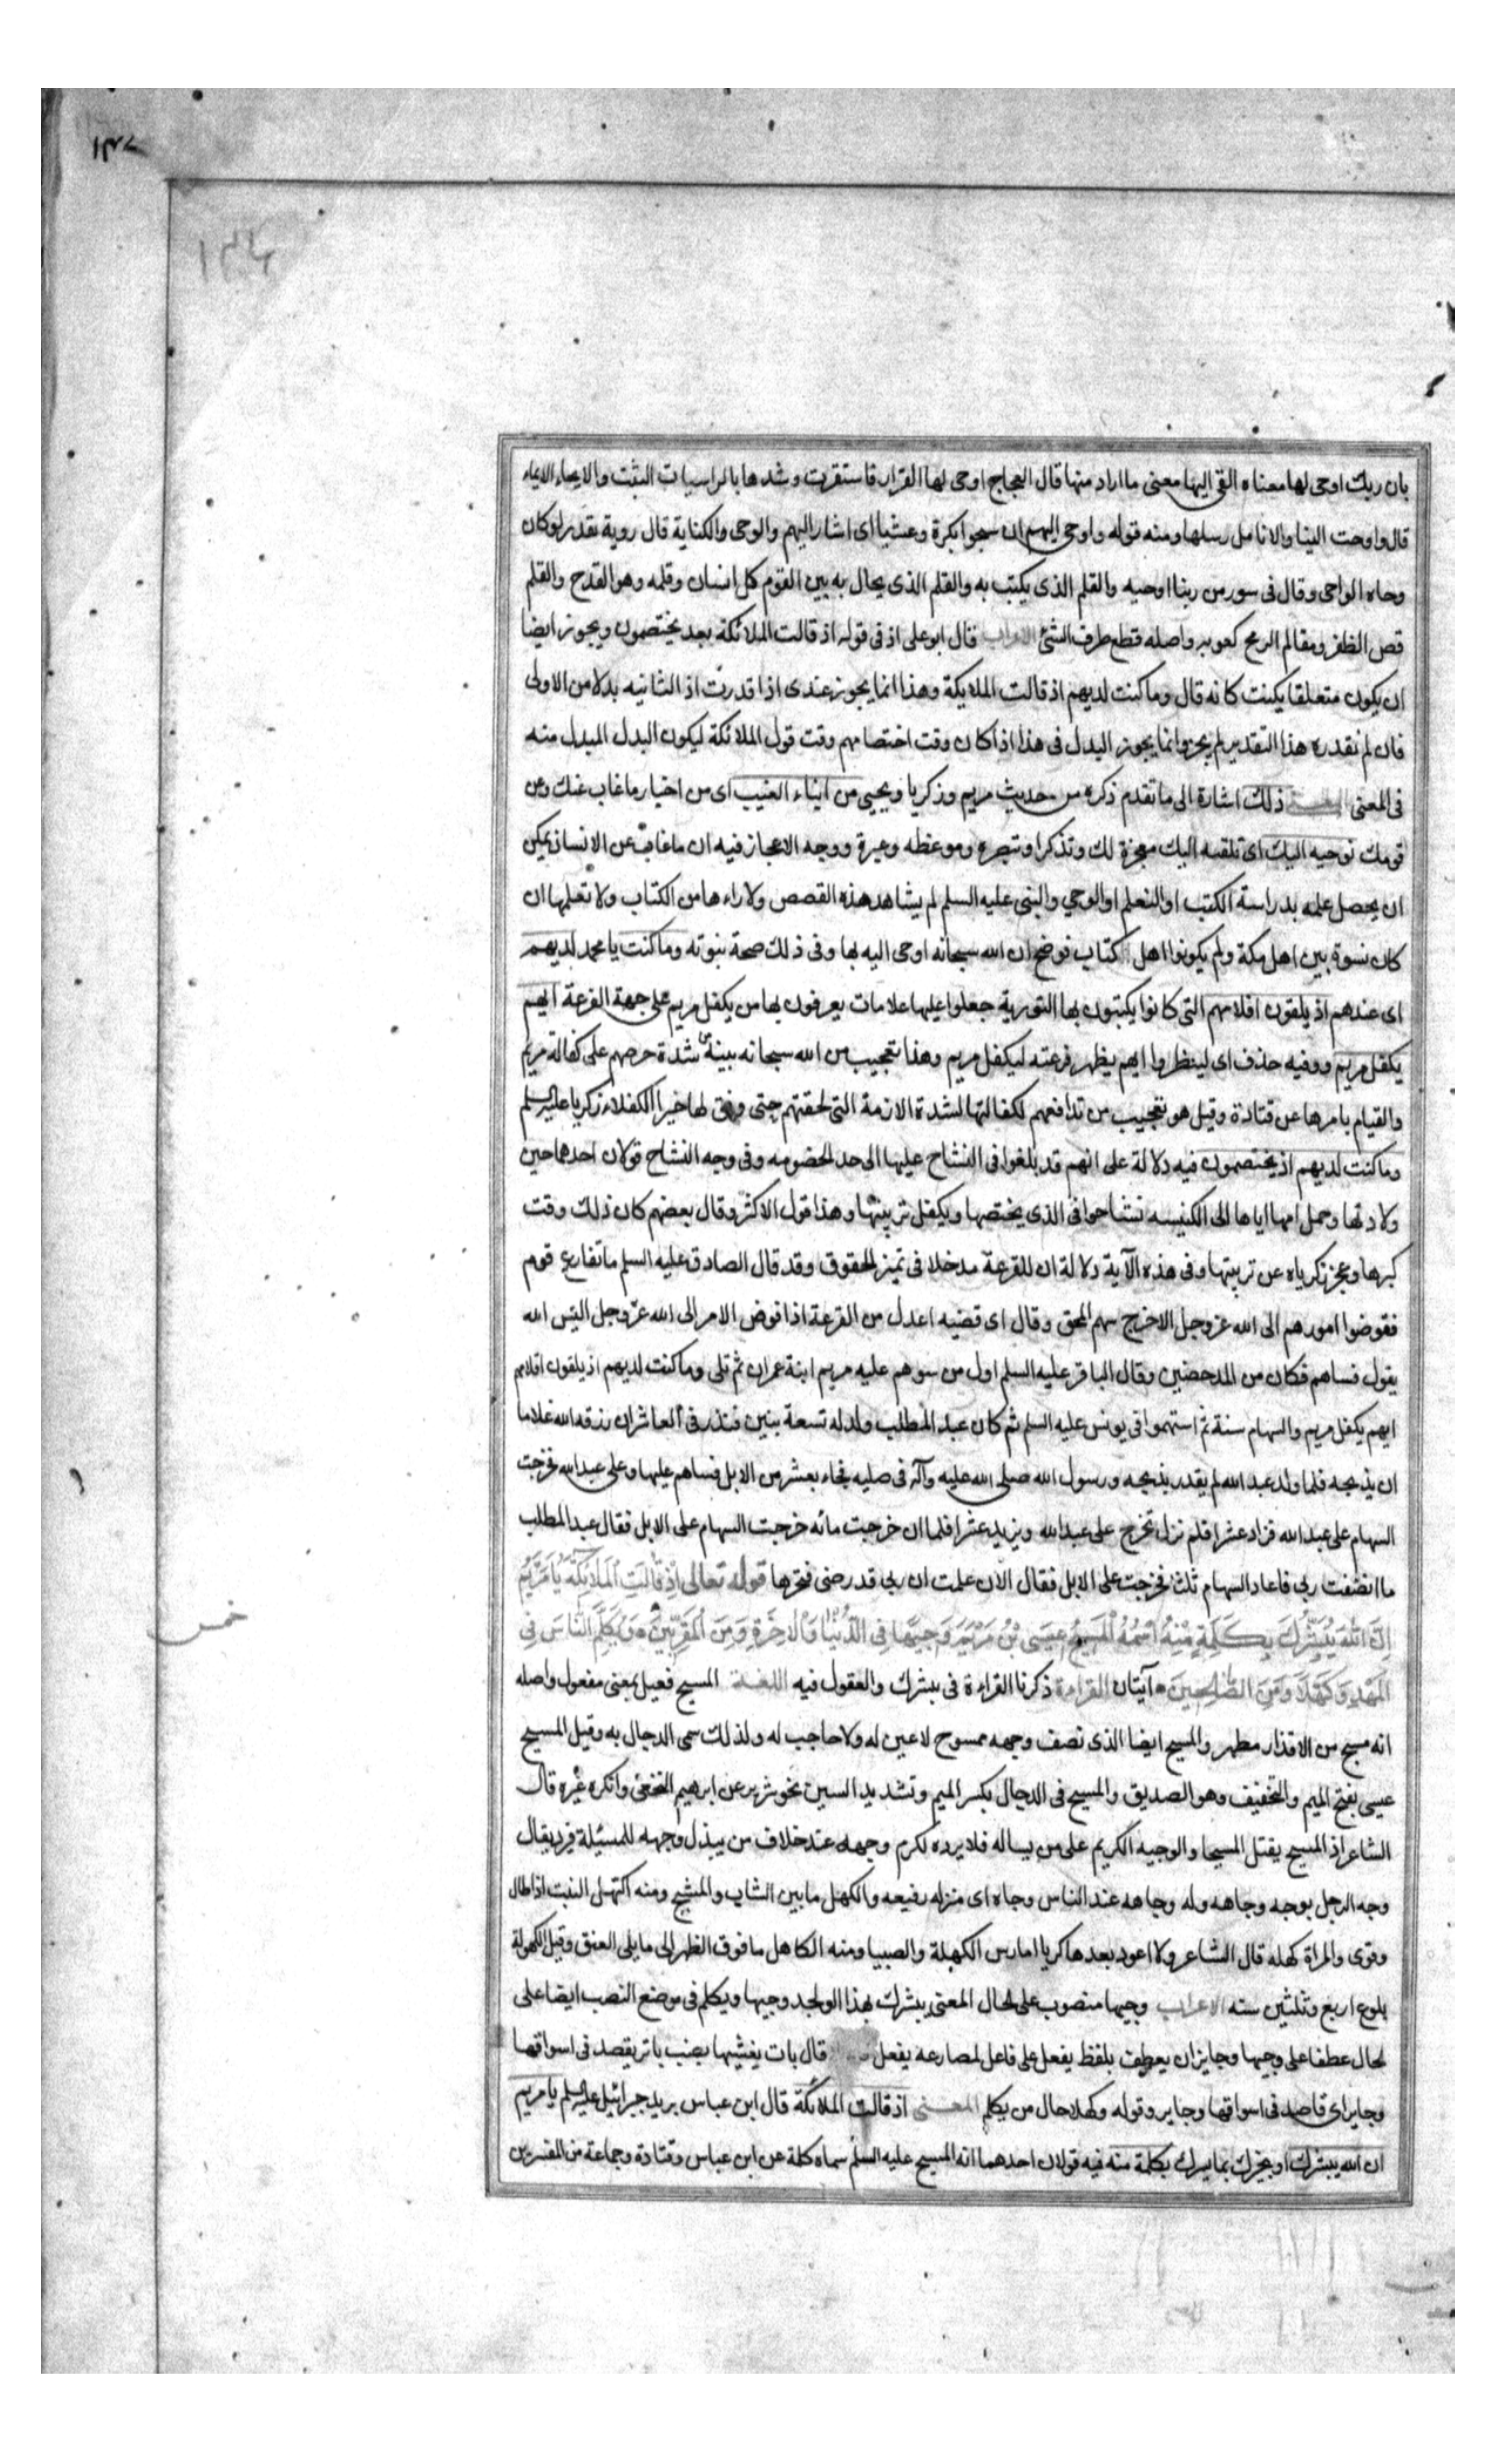 ١٣٧
١٣٤
بان ربك اوحى لها معناه القى اليها معنى ما اراد منها قال العجاج اوحى لها القرار فاستقرت وشدها بالراسيات الثبت والايحاء الايماء
قال واوحت الينا والانامل رسلها ومنه قوله واوحى اليهم ان سبحوا بكرة وعشيا اى اشار اليهم والوحى والكتابة قال روبة بقدر لو كان
وحاه الواحى وقال فى سور من ربنا اوحيه والقلم الذى يكتب به والقلم الذى يحال به بين القوم كل انسان وقلمه وهو القدح والقلم
قص الظفر ومقالم الرمح كعوبه واصله قطع طرف الشئ الاعراب قال ابو على اذ فى قوله اذ قالت الملائكة بعد يختصمون ويجوز ايضا
ان يكون متعلقا بكنت كانه قال وما كنت لديهم اذ قالت الملايكة وهذا انما يجوز عندى اذا قدرت اذ الثانيه بدلا من الاولى
فان لم نقدره هذا التقدير لم يجز وانما يجوز البدل فى هذا اذا كان وقت اختصامهم وقت قول الملائكة ليكون البدل المبدل منه
فى المعنى ذلك اشارة الى ما تقدم ذكره من حديث مريم وذكريا ويحيى من انباء الغيب اى من اخبار ما غاب عنك وعن
قومك نوحيه اليك اى نلقيه اليك معجزة لك وتذكرا وتبصره وموعظه وعبرة ووجه الاعجاز فيه ان ما غاب عن الانسان يمكن
ان يحصل علمه بدراسة الكتب او التعلم او الوحي والنبى عليه السلم لم يشاهد هذه القصص ولا راءها من الكتاب ولا تعلمها ان
كان نسوة بين اهل مكة ولم يكونوا اهل كتاب فوضح ان الله سبحانه اوحى اليه بها وفى ذلك صحة نبوته وما كنت يا محمد لديهم
اى عندهم اذ يلقون اقلامهم التى كانوا يكتبون بها التورية جعلوا عليها علامات يعرفون بها من يكفل مريم على جهة القرعة ايهم
يكفل مريم ووفيه حذف اى لينظروا ايهم يظهر قرعته ليكفل مريم وهذا تعجيب من الله سبحانه ببينه شدة حرصهم على كفالة مريم
والقيام بامرها عن قتادة وقيل هو تعجيب من تدافعهم لكفالتها لشدة الازمة التى لحقتهم حتى وفق لها خير الكفلاء زكريا عليه السلم
وما كنت لديهم اذ يختصمون فيه دلالة على انهم قد بلغوا فى التشاح عليها الى حد الخصومه وفى وجه التشاح قولان احدهما حين
ولادتها وحمل امها اياها الى الكنيسه تشاحوا فى الذى يختصها ويكفل تربيتها وهذا قول الاكثر وقال بعضهم كان ذلك وقت
كبرها وعجز زكرياء عن تربيتها وفى هذه الآية دلالة ان للقرعة مدخلا فى تميز الحقوق وقد قال الصادق عليه السلم ما تقارع قوم
فقوضوا امورهم الى الله عز وجل الا خرج سهم المحق وقال اى قضيه اعدل من القرعة اذا فوض الامر الى الله عز وجل اليس الله
يقول فساهم فكان من المدحضين وقال الباقر عليه السلم اول من سوهم عليه مريم ابنة عمران ثم تلى وما كنت لديهم اذ يلقون اقلامهم
ايهم يكفل مريم والسهام ستة ثم استهموا فى يونس عليه السلم ثم كان عبد المطلب ولد له تسعة بنين فنذر فى العاشر ان رزقه الله غلاما
ان يذبحه فلما ولد عبد الله لم يقدر يذبحه ورسول الله صلى الله عليه وآله فى صلبه فجاء بعشر من الابل فساهم عليها وعلى عبد الله فخرجت
السهام على عبد الله فزاد عشرا فلم تزل تخرج على عبد الله ويزيد عشرا فلما ان خرجت مائه خرجت السهام على الابل فقال عبد المطلب
ما انصفت ربى فاعاد السهام ثلثا فخرجت على الابل فقال الآن علمت ان ربى قد رضى فنحرها قوله تعالى اِذْ قَالَتِ الْمَلَائِكَةُ يَا مَرْيَمُ
اِنَّ اللّٰهَ يُبَشِّرُكِ بِكَلِمَةٍ مِنْهُ اسْمُهُ الْمَسِيحُ عِيسَى بْنُ مَرْيَمَ وَجِيهًا فِى الدُّنْيَا وَالْآخِرَةِ وَمِنَ الْمُقَرَّبِينَ وَيُكَلِّمُ النَّاسَ فِى
الْمَهْدِ وَكَهْلًا وَمِنَ الصَّالِحِينَ آيتان القراءة ذكرنا القراءة فى يبشرك والقول فيه اللغة المسيح فعيل بمعنى مفعول واصله
انه مسح من الاقذار مطهر والمسيح ايضا الذى نصف وجهه ممسوح لا عين له ولا حاجب له ولذلك سمى الدجال به وقيل المسيح
عيسى بفتح الميم والتخفيف وهو الصديق والمسيح فى الدجال بكسر الميم وتشديد السين نحو شرير عن ابرهيم النخعى وانكره غيره قال
الشاعر اذ المسيح يقتل المسيحا والوجيه الكريم على من يساله فلا يرده لكرم وجهه عنده خلاف من يبذل وجهه للمسئلة فيرد يقال
وجه الرجل يوجه وجاهه وله وجاهه عند الناس وجاه اى منزله رفيعه والكهل ما بين الشاب والشيخ ومنه اكتهل النبت اذا طال
وقوى والمراة كهله قال الشاعر ولا اعود بعدها كريا امارس الكهلة والصبيا ومنه الكاهل ما فوق الظهر الى ما يلى العنق وقيل الكهولة
بلوغ اربع وثلثين سنه الاعراب وجيها منصوب على الحال المعنى يبشرك بهذا الولد وجيها ويكلم فى موضع النصب ايضا على
الحال عطفا على وجيها وجايز ان يعطف بلفظ يفعل على فاعل لمضارعه يفعل قال بات يغشيها بعضب باتر يقصد فى اسواقها
وجاير اى قاصد فى اسواقها وجاير وقوله وكهلا حال من يكلم المعنى اذ قالت الملائكة قال ابن عباس يريد جبرائيل عليه السلم يا مريم
ان الله يبشرك او يخبرك بما يسرك بكلمة منه فيه قولان احدهما انه المسيح عليه السلم سماه كلمة عن ابن عباس وقتادة وجماعة من المفسرين
خمس